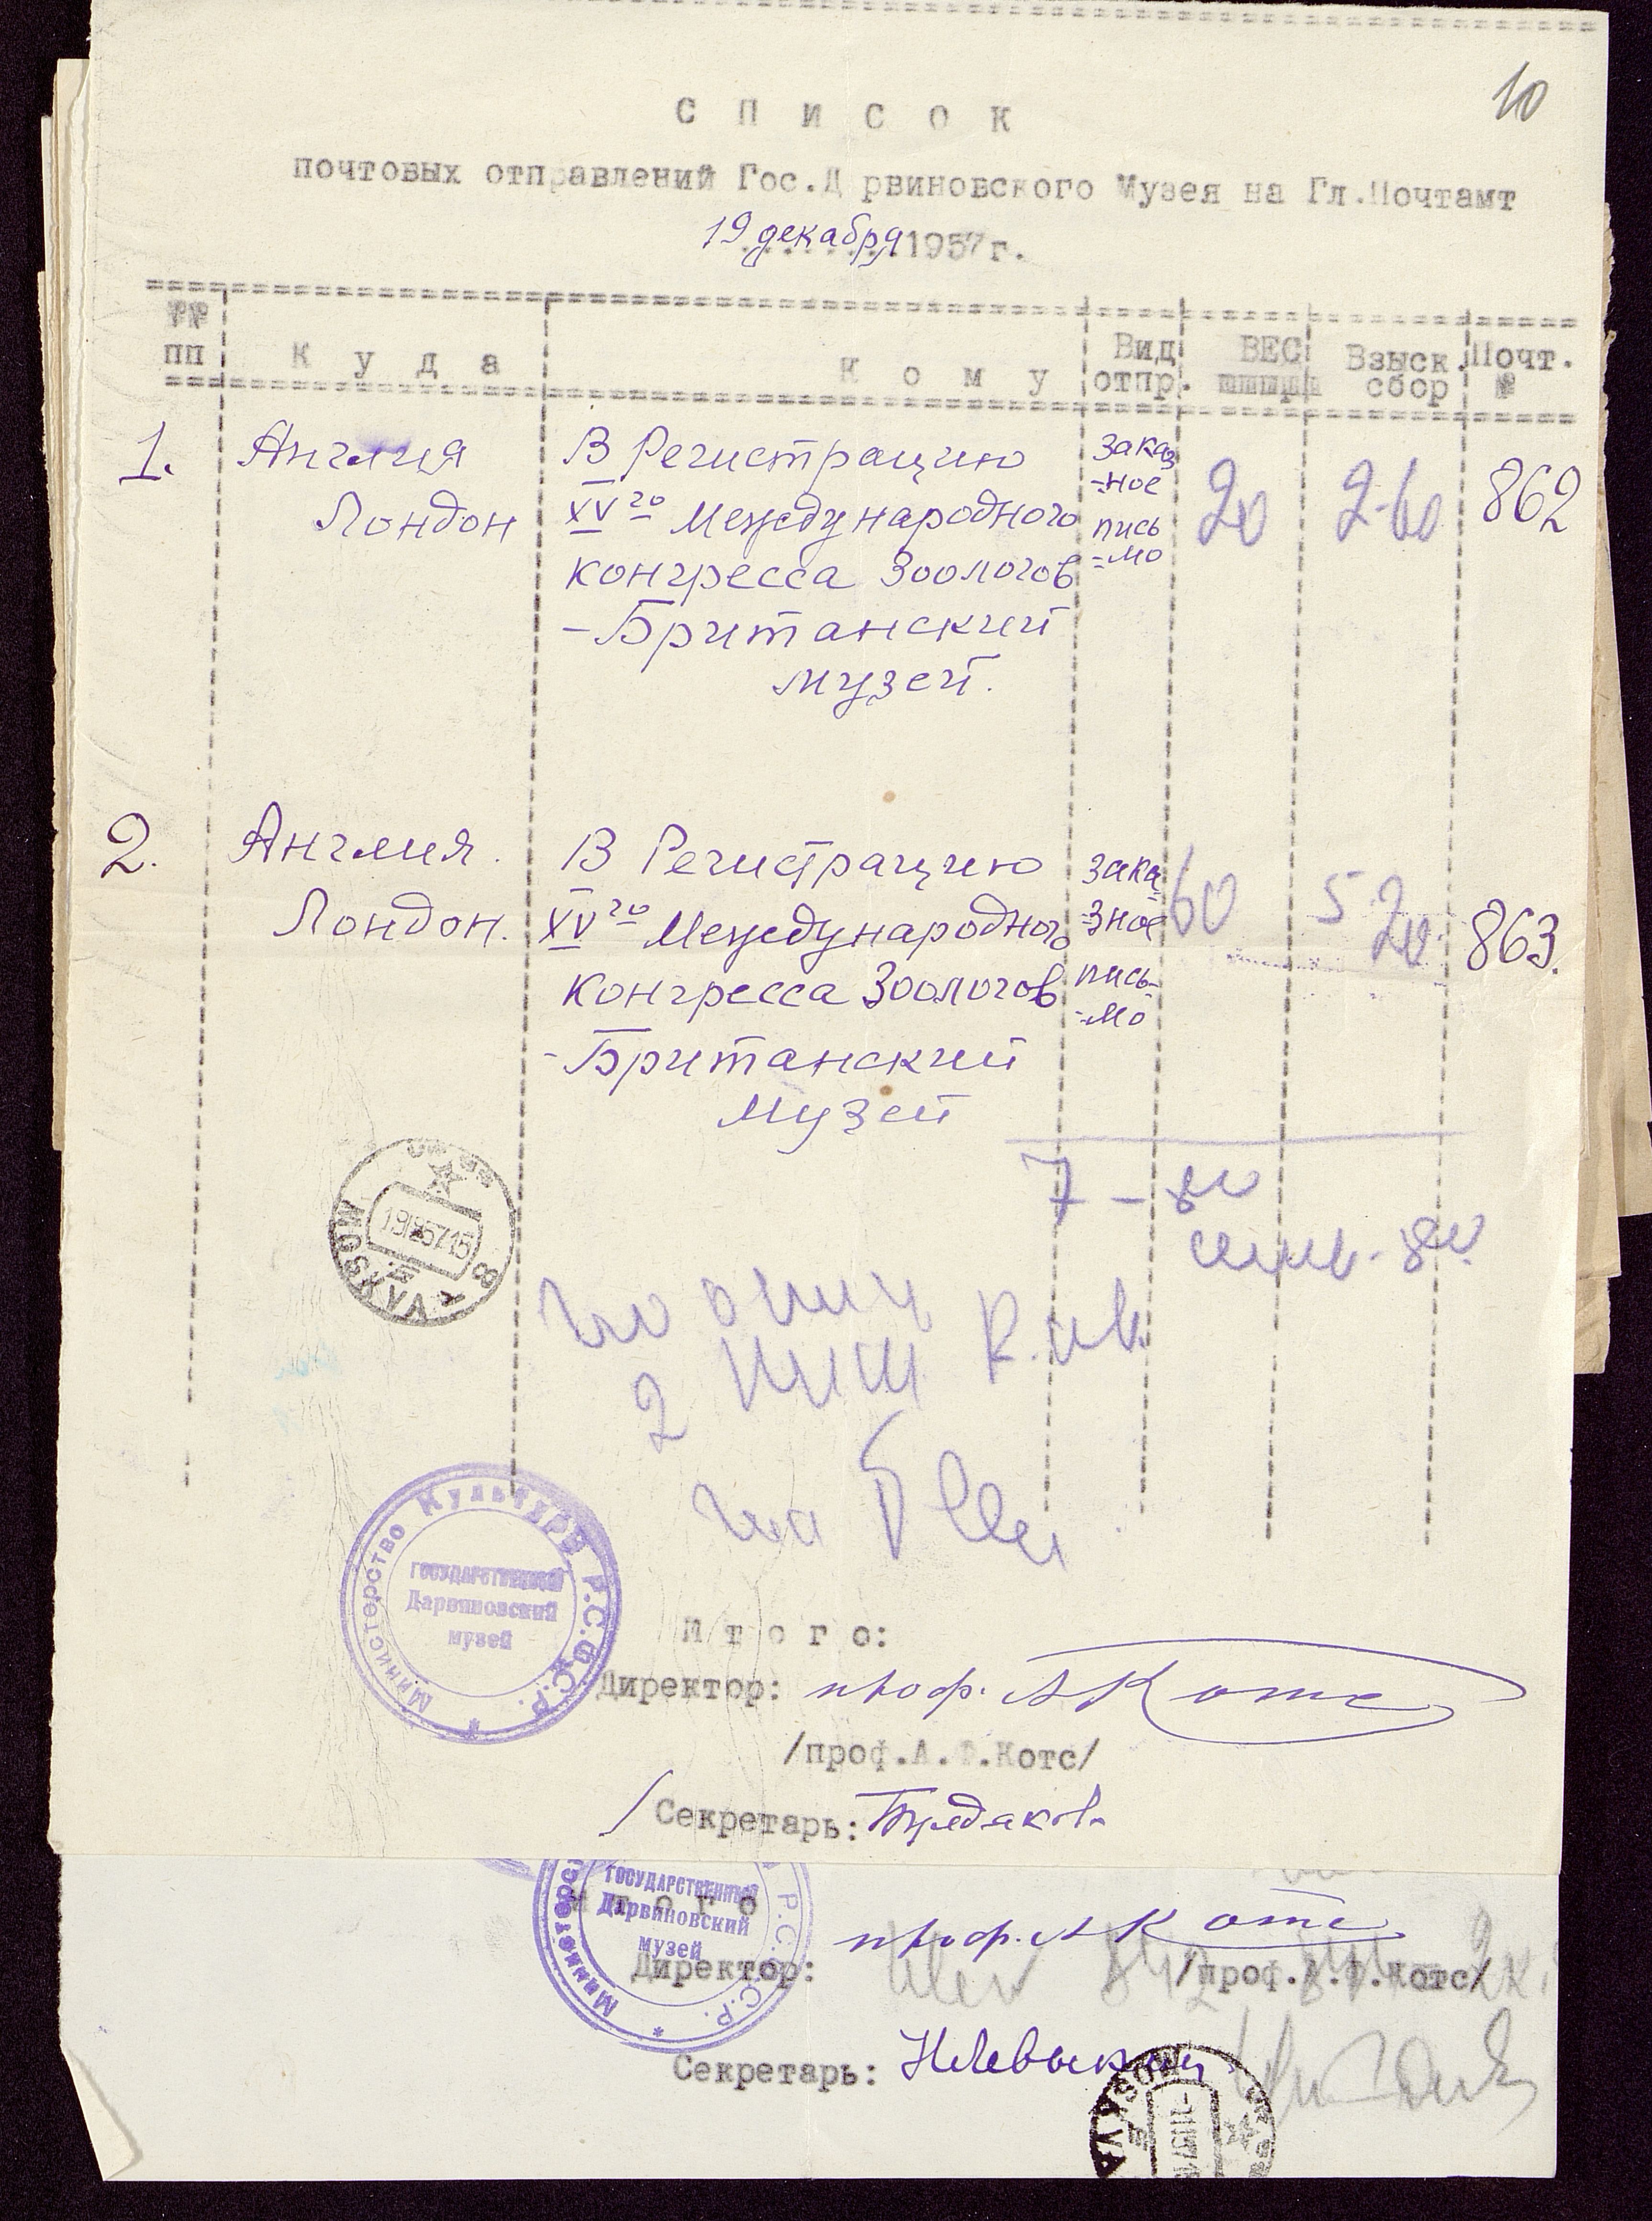 10
С П И С О К
почтовых отправлений Гос.Д рвиновского Музея на Гл.Почтамт
19 декабря 1957г.
№№ пп
К у д а
К о м у
Вид отпр.
ВЕС
Взыск. сбор
Почт. №
1.
Англия
Лондон
В Регистрацию
XVго Международного
конгресса Зоологов
- Британский
музей.
заказ
-ное
пись
=мо
20
2-60
862
2.
Англия.
Лондон.
В Регистрацию
XVго Международного
конгресса Зоологов
- Британский
музей
зака
=зное
пись-
=мо
60
5 20
863.
7 - 80
MOSKVA
19 12 57 15
8
2
Министерство Культуры Р.С.Ф.С.Р.
ГОСУДАРСТВЕННЫЙ
Дарвиновский
музей
И т о г о:
Директор: проф. А Котс
/проф.А.Ф.Котс/
Секретарь: Булдакова
ГОСУДАРСТВЕННЫЙ
Дарвиновский
музей
Р.С.
С.Р.
И т о г о
Директор: проф. А Котс
/проф.А.Ф.Котс/
Секретарь:
MOSKVA